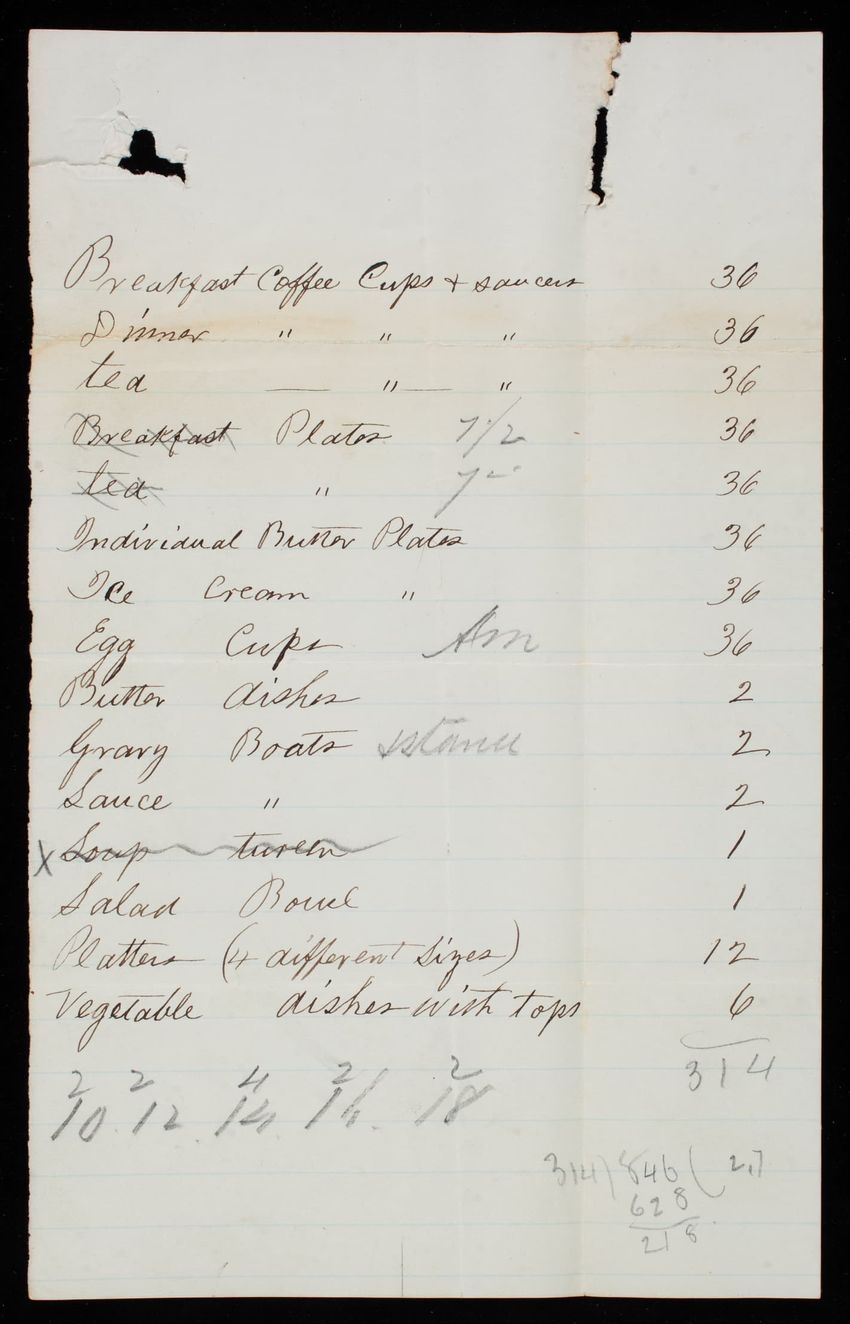 Breakfast Coffee Cups + saucers 36
Dinner " " " 36
tea — " — " 36
Breakfast Plates 7 1/2 36
tea " 7 36
Individual Butter Plates 36
Ice Cream " 36
Egg Cups 36
Butter dishes 2
Gravy Boats 2
Sauce " 2
X Soup tureen 1
Salad Bowl 1
Platters (4 different sizes) 12
Vegetable dishes with tops 6
314
2 2 4 2 2
10 12 14 16 18
314) 846 ( 2.7
628
218